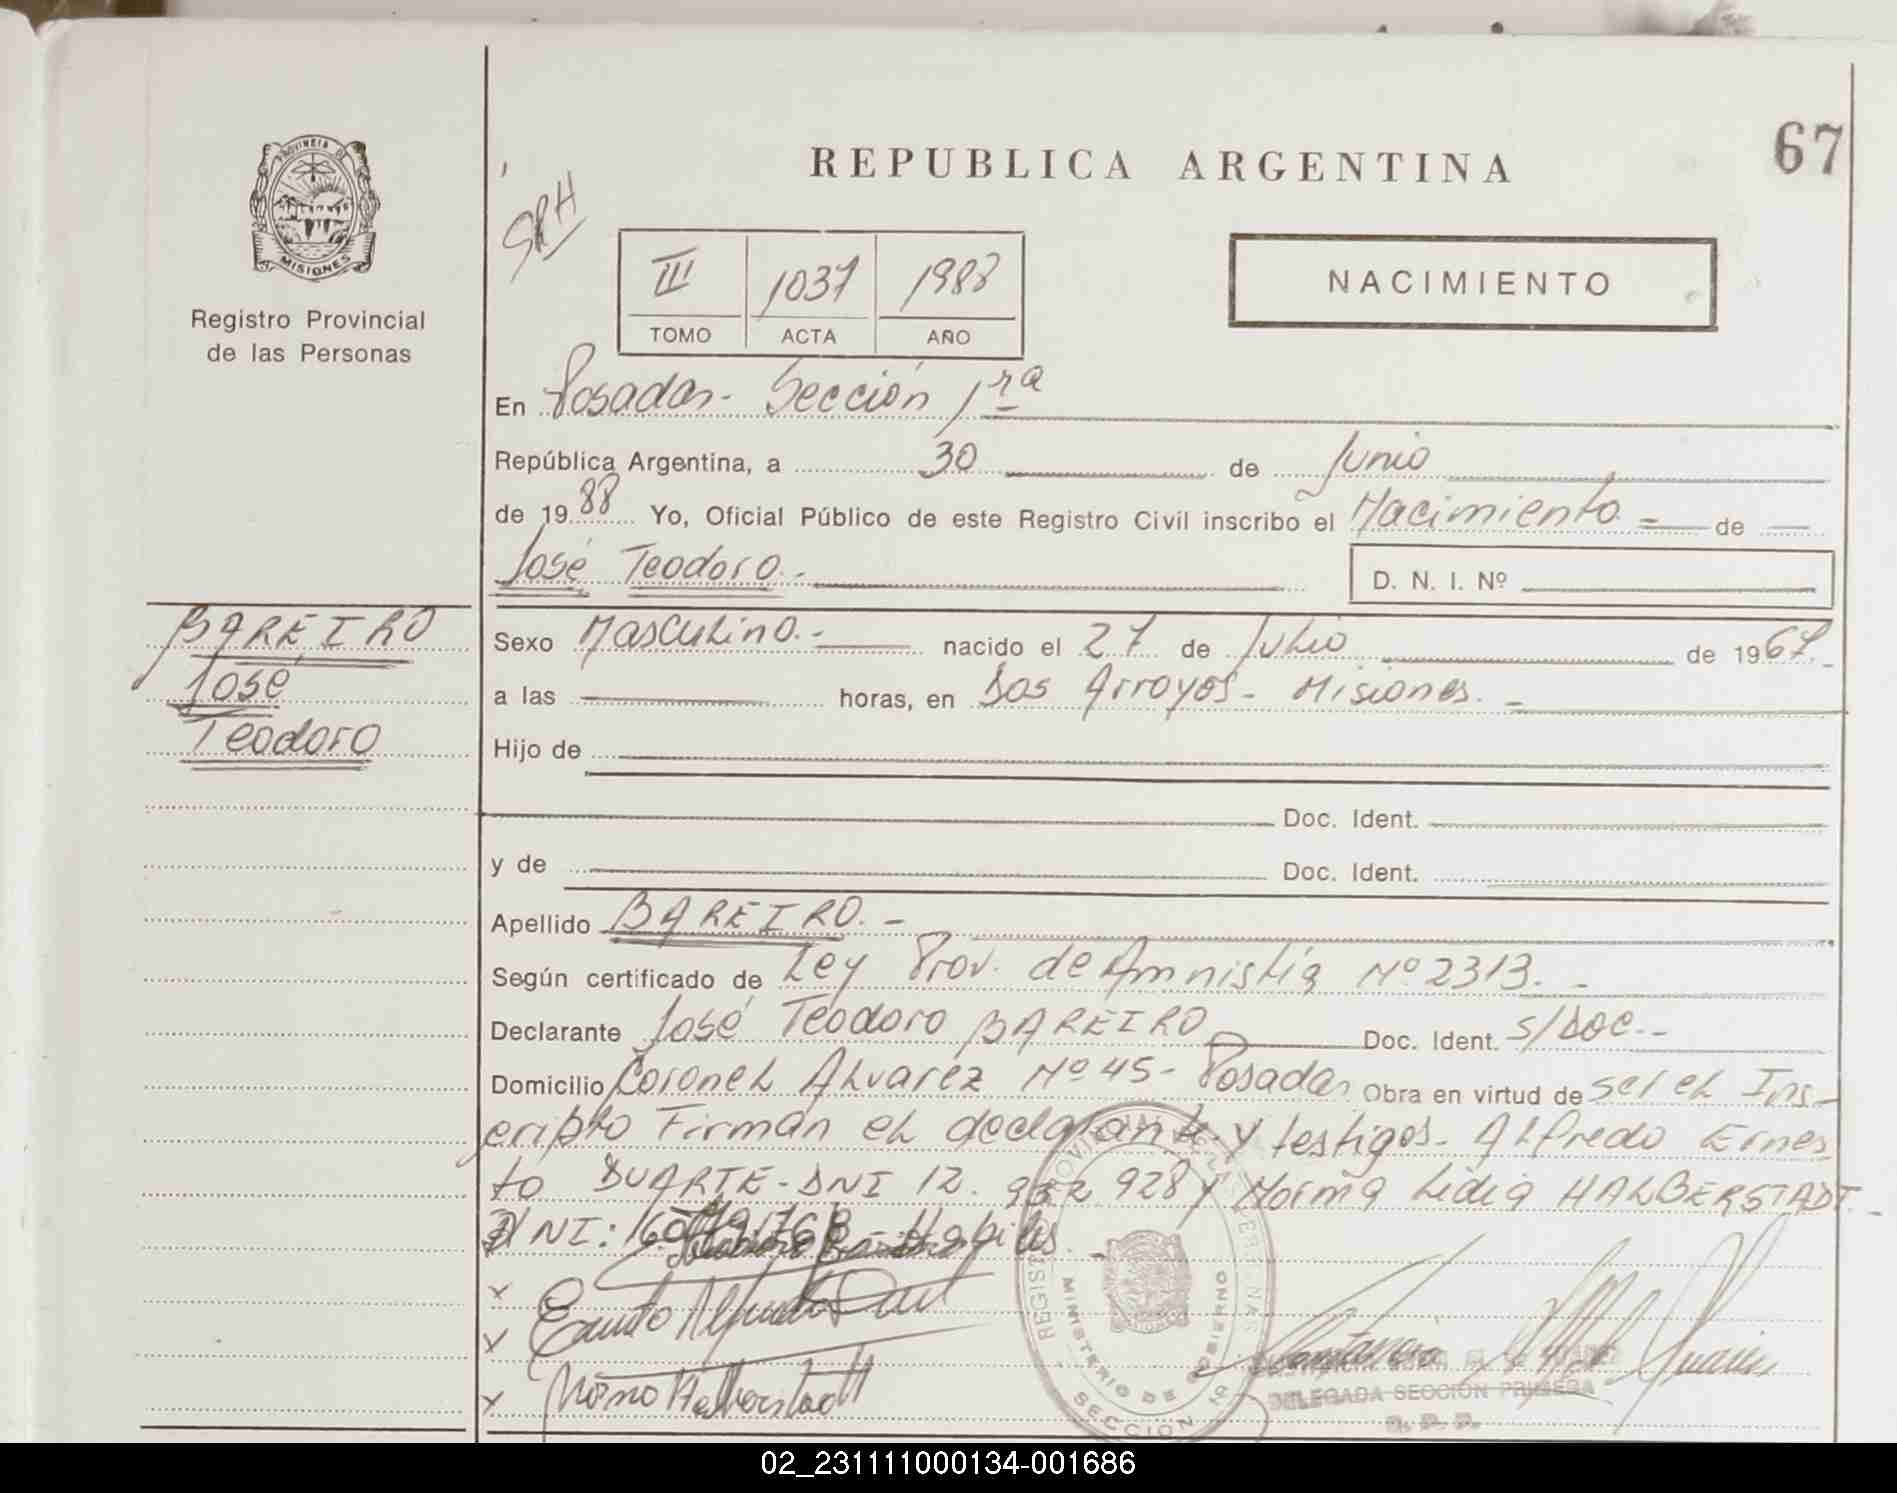 67
REPUBLICA ARGENTINA
PROVINCIA DE
MISIONES
Registro Provincial
de las Personas
SRH
III 1037 1988
TOMO ACTA AÑO
NACIMIENTO
En Posadas- Sección 1ra
República Argentina, a 30 de Junio
de 1988 Yo, Oficial Público de este Registro Civil inscribo el Nacimiento - de
José Teodoro.- D. N. I. Nº
BAREIRO
José
Teodoro
Sexo Masculino.- nacido el 27 de Julio de 1967.-
a las horas, en Dos Arroyos- Misiones.-
Hijo de
Doc. Ident.
y de Doc. Ident.
Apellido BAREIRO.-
Según certificado de Ley Prov. de Amnistía Nº 2313.-
Declarante José Teodoro BAREIRO Doc. Ident. s/Doc.-
Domicilio Coronel Alvarez Nº 45- Posadas Obra en virtud de ser el Ins-
cripto Firman el declarante y testigos- Alfredo Ernes
to DUARTE-DNI 12. 928 y Norma Lidia HALBERSTADT.-
DNI: Hábiles.-
x
x
x Norma Halberstadt
MINISTERIO DE GOBIERNO
SECCION
DELEGADA SECCION PRIMERA
R. P. P.
02_231111000134-001686